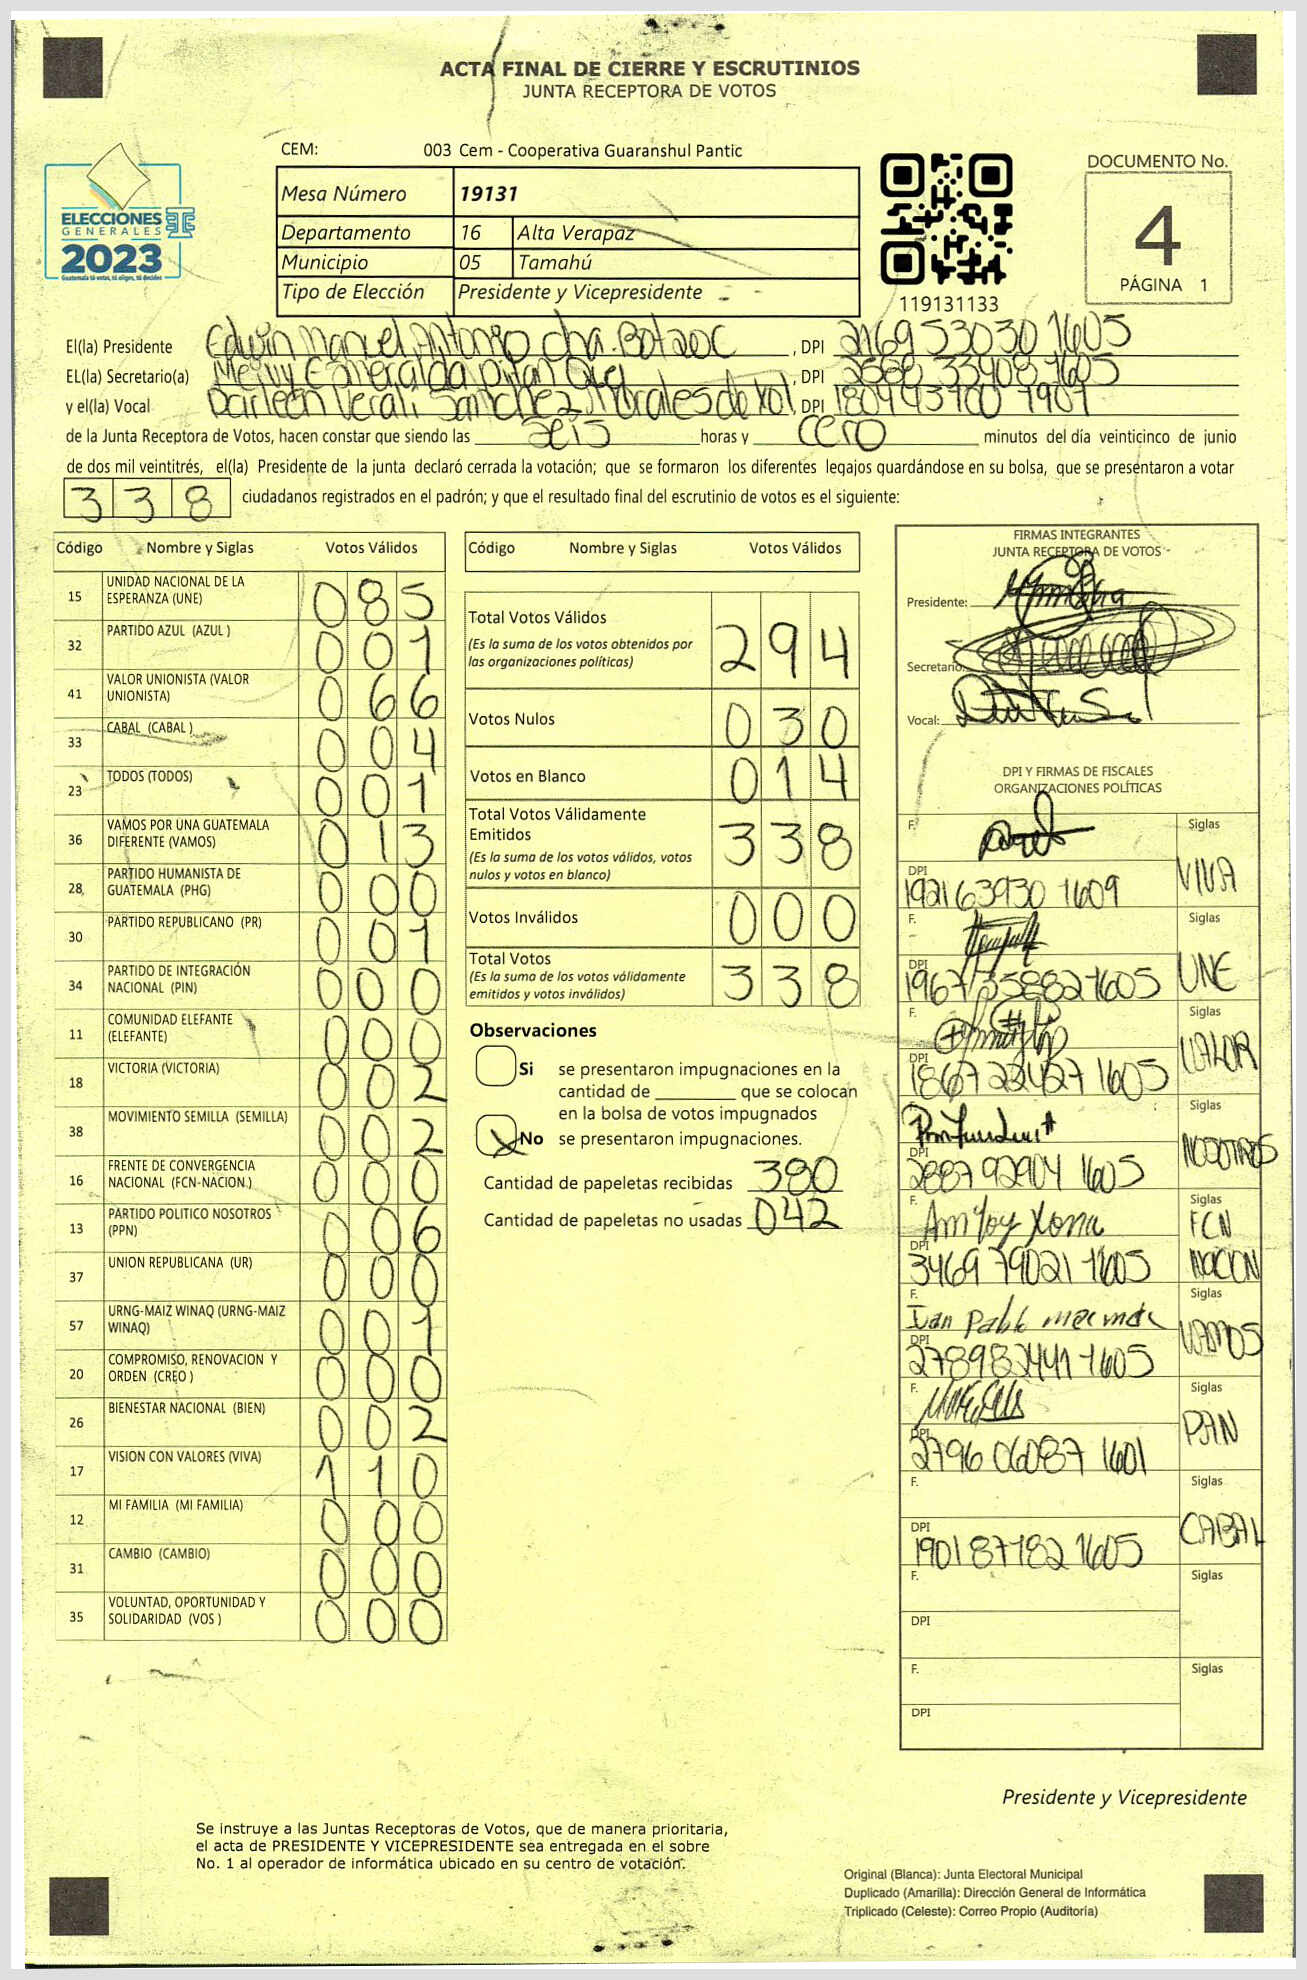 ACTA FINAL DE CIERRE Y ESCRUTINIOS
JUNTA RECEPTORA DE VOTOS
CEM: 003 Cem - Cooperativa Guaranshul Pantic
ELECCIONES
GENERALES
2023
Guatemala tú votas, tú eliges, tú decides
Mesa Número 19131
Departamento 16 Alta Verapaz
Municipio 05 Tamahú
Tipo de Elección Presidente y Vicepresidente
119131133
DOCUMENTO No.
4
PÁGINA 1
El(la) Presidente Edwin Manuel Antonio cha Botzoc , DPI 2169 53030 1605
EL(la) Secretario(a) Esmeralda , DPI 2588 33408 1605
y el(la) Vocal Darleen Verali Sanchez Morales de Xol, DPI 1809 43700 1907
de la Junta Receptora de Votos, hacen constar que siendo las seis horas y cero minutos del día veinticinco de junio
de dos mil veintitrés, el(la) Presidente de la junta declaró cerrada la votación; que se formaron los diferentes legajos guardándose en su bolsa, que se presentaron a votar
338 ciudadanos registrados en el padrón; y que el resultado final del escrutinio de votos es el siguiente:
Código Nombre y Siglas Votos Válidos
15 UNIDAD NACIONAL DE LA ESPERANZA (UNE) 085
32 PARTIDO AZUL (AZUL ) 001
41 VALOR UNIONISTA (VALOR UNIONISTA) 066
33 CABAL (CABAL ) 004
23 TODOS (TODOS) 001
36 VAMOS POR UNA GUATEMALA DIFERENTE (VAMOS) 013
28 PARTIDO HUMANISTA DE GUATEMALA (PHG) 000
30 PARTIDO REPUBLICANO (PR) 001
34 PARTIDO DE INTEGRACIÓN NACIONAL (PIN) 000
11 COMUNIDAD ELEFANTE (ELEFANTE) 000
18 VICTORIA (VICTORIA) 002
38 MOVIMIENTO SEMILLA (SEMILLA) 002
16 FRENTE DE CONVERGENCIA NACIONAL (FCN-NACION ) 000
13 PARTIDO POLITICO NOSOTROS (PPN) 006
37 UNION REPUBLICANA (UR) 000
57 URNG-MAIZ WINAQ (URNG-MAIZ WINAQ) 001
20 COMPROMISO, RENOVACION Y ORDEN (CREO ) 000
26 BIENESTAR NACIONAL (BIEN) 002
17 VISION CON VALORES (VIVA) 110
12 MI FAMILIA (MI FAMILIA) 000
31 CAMBIO (CAMBIO) 000
35 VOLUNTAD, OPORTUNIDAD Y SOLIDARIDAD (VOS ) 000
Código Nombre y Siglas Votos Válidos
Total Votos Válidos 294
(Es la suma de los votos obtenidos por
las organizaciones políticas)
Votos Nulos 030
Votos en Blanco 014
Total Votos Válidamente Emitidos 338
(Es la suma de los votos válidos, votos
nulos y votos en blanco)
Votos Inválidos 000
Total Votos 338
(Es la suma de los votos válidamente
emitidos y votos inválidos)
Observaciones
Si se presentaron impugnaciones en la
cantidad de ________ que se colocan
en la bolsa de votos impugnados
X No se presentaron impugnaciones.
Cantidad de papeletas recibidas 380
Cantidad de papeletas no usadas 042
FIRMAS INTEGRANTES
JUNTA RECEPTORA DE VOTOS
Presidente:
Secretario:
Vocal:
DPI Y FIRMAS DE FISCALES
ORGANIZACIONES POLÍTICAS
F. Siglas
DPI 1921 63930 1609 VIVA
F. Siglas
DPI 1967 35882 1605 UNE
F. Siglas
DPI 1867 22427 1605 VALOR
Siglas
DPI 2887 92904 1605 NOSOTROS
F. Siglas
DPI 3469 79021 1605 FCN NACION
F. Ivan Pablo Siglas
DPI 2789 82441 1605 VAMOS
F. Siglas
DPI 2796 06087 1601 PAN
F. Siglas
DPI 1901 87782 1605 CABAL
F. Siglas
DPI
F. Siglas
DPI
Presidente y Vicepresidente
Se instruye a las Juntas Receptoras de Votos, que de manera prioritaria,
el acta de PRESIDENTE Y VICEPRESIDENTE sea entregada en el sobre
No. 1 al operador de informática ubicado en su centro de votación.
Original (Blanca): Junta Electoral Municipal
Duplicado (Amarilla): Dirección General de Informática
Triplicado (Celeste): Correo Propio (Auditoría)